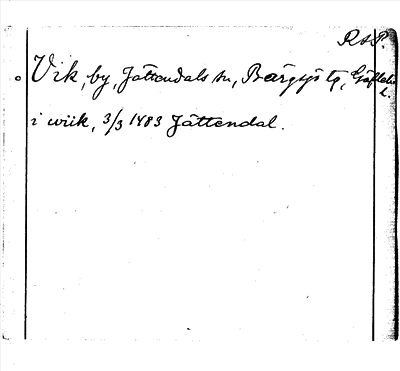 R A P.
Vik, by, Jättendals sn, Bergsjö tg, Gäfleb. l.
i wiik, 3/3 1483 Jättendal.